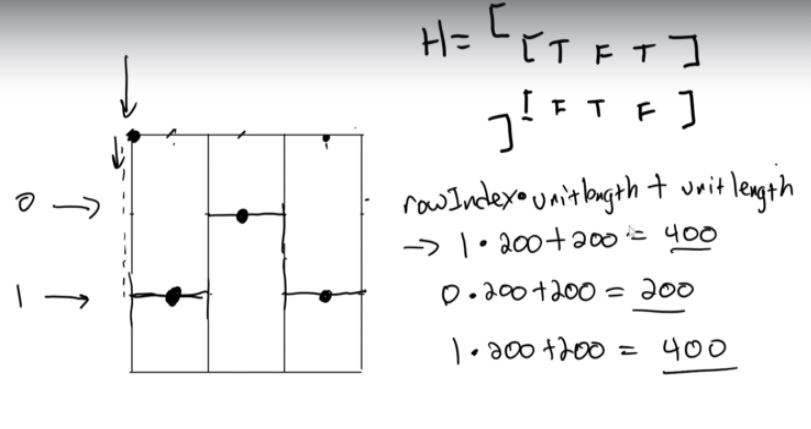 H= [
[T F T]
[F T F]
]
0 →
rowIndex • unitlength + unitlength
→ 1 • 200 + 200 = 400
1 →
0 • 200 + 200 = 200
1 • 200 + 200 = 400